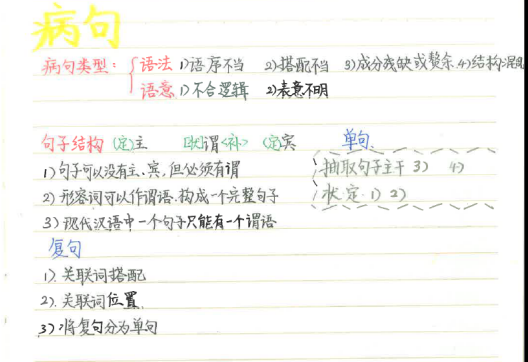 病句
病句类型：语法 1)语序不当 2)搭配不当 3)成分残缺或赘余 4)结构混乱
语意 1)不合逻辑 2)表意不明
句子结构 (定)主 [状]谓<补> (定)宾 单句
1)句子可以没有主、宾,但必须有谓 抽取句子主干 3) 4)
2)形容词可以作谓语.构成一个完整句子 状定 1) 2)
3)现代汉语中一个句子只能有一个谓语
复句
1).关联词搭配
2).关联词位置.
3)将复句分为单句